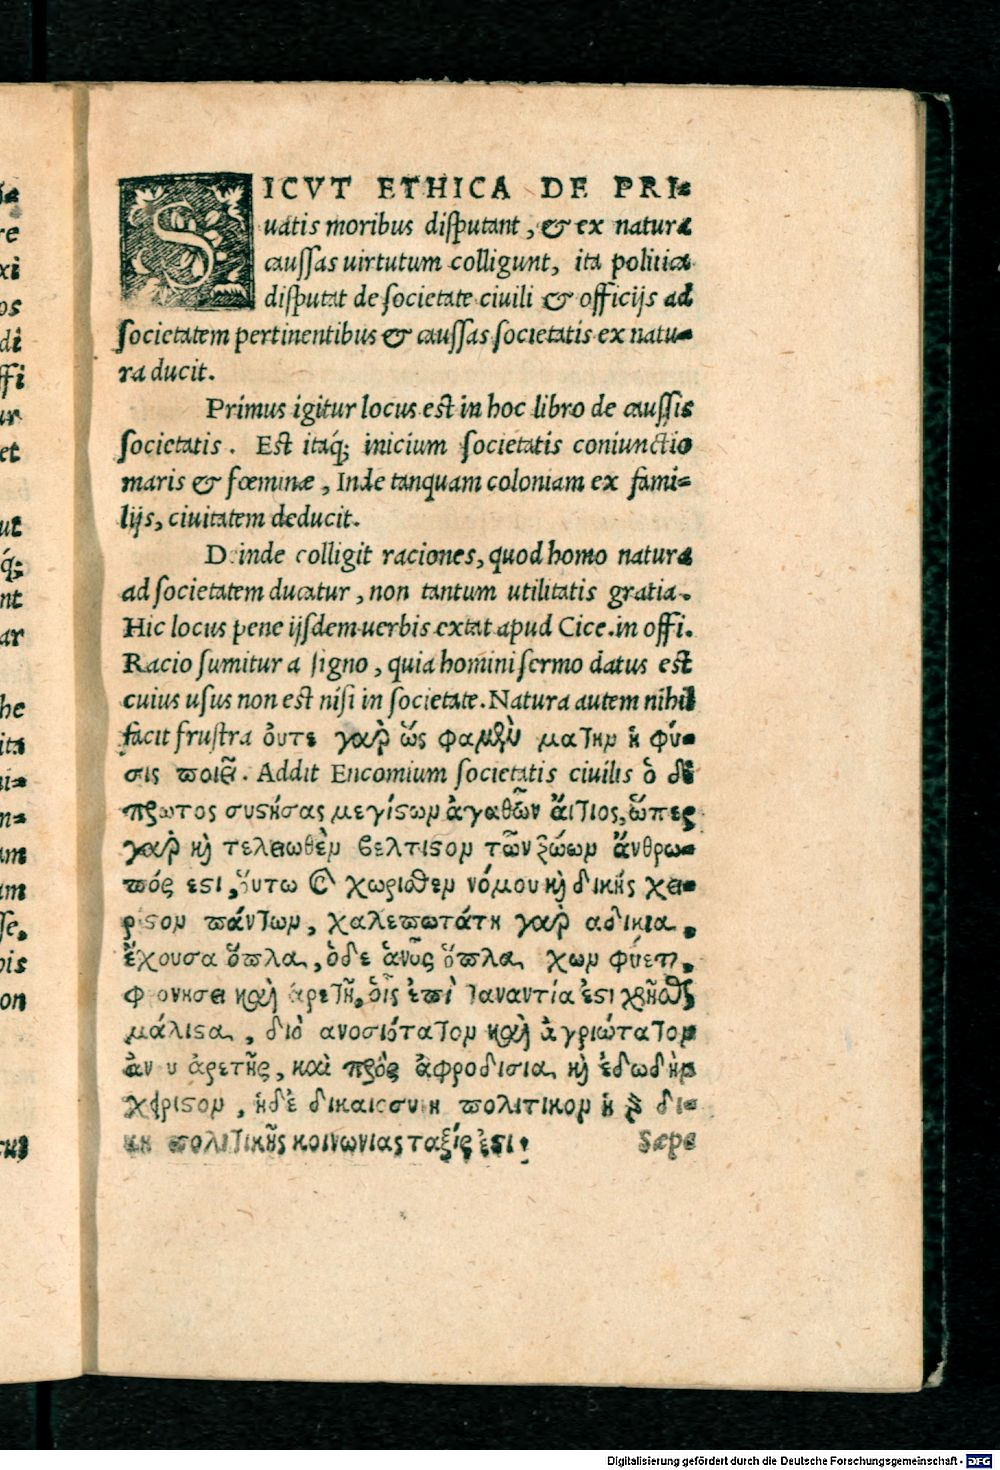 SICVT ETHICA DE PRI⸗
uatis moribus disputant, & ex natura
caussas uirtutum colligunt, ita politica
disputat de societate ciuili & officijs ad
societatem pertinentibus & caussas societatis ex natu⸗
ra ducit.
Primus igitur locus est in hoc libro de caussis
societatis. Est itaq́; inicium societatis coniunctio
maris & fœminæ, Inde tanquam coloniam ex fami⸗
lijs, ciuitatem deducit.
Deinde colligit raciones, quod homo natura
ad societatem ducatur, non tantum utilitatis gratia.
Hic locus pene ijsdem uerbis extat apud Cice. in offi.
Racio sumitur a signo, quia homini sermo datus est
cuius usus non est nisi in societate. Natura autem nihil
facit frustra ὀυτε γαρ̀ ὥς φαμὲν ματην ἡ φύ⸗
σις ποιεῖ. Addit Encomium societatis ciuilis ὁ δὲ
πρωτος συϛήσας μεγίϛων ἀγαθῶν ἄιτιος, ὥπερ
γαρ̀ κ̀ τελειωθὲν βελτιϛον τῶν ζώων ἄνθρω⸗
πός εϛι, ὅυτω χωρισθεν νόμου κ̀ δικής χει⸗
ριϛον πάντων, χαλεπωτάτη γαρ̀ αδικια,
ἔχουσα ὅπλα, ὁδε ἀνο͂ς ὅπλα χων φύεται,
φρονησει καὶ ἀρετῇ, ὁἷς ἐπὶ ταναντία ἐϛι χρῆσθαι
μάλιϛα, διὸ ανοσιότατον καὶ ἀγριώτατον
ἀνευ ἀρετῆς, καὶ πρὸς ἀφροδισια κ̀ ἐδωδὴν
χείριϛον, ἡδὲ δικαιοσυνη πολιτικον ἡ γὰρ δι⸗
κη πολιτικῆς κοινωνιας ταξίς ἐϛι!
Sæpe
Digitalisierung gefördert durch die Deutsche Forschungsgemeinschaft - DFG